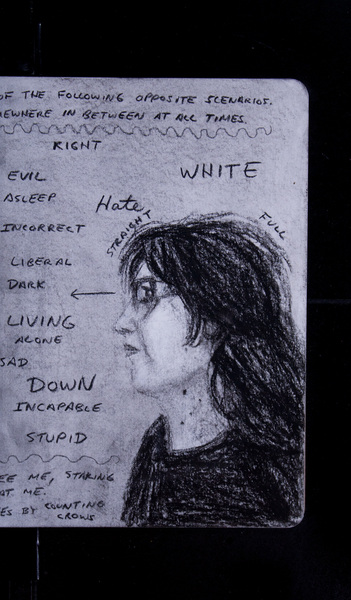 OF THE FOLLOWING OPPOSITE SCENARIOS.
EWHERE IN BETWEEN AT ALL TIMES.
RIGHT
WHITE
EVIL
ASLEEP
Hate
STRAIGHT
FULL
INCORRECT
LIBERAL
DARK
LIVING
ALONE
SAD
DOWN
INCAPABLE
STUPID
EE ME, STARING
AT ME.
ES BY COUNTING
CROWS